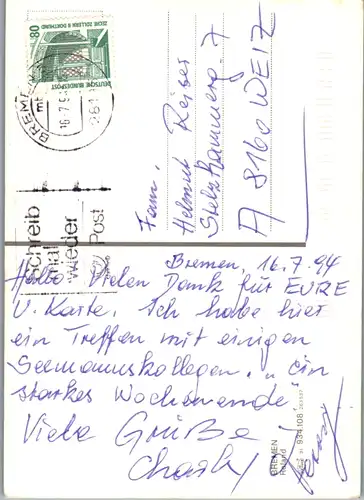 80
ZECHE ZOLLERN II DORTMUND
DEUTSCHE BUNDESPOST
BREMEN
16.-7.9
281
Schreib
mal
wieder
Post
Fam.
Helmut Reiser
A 8160 WEIZ
Bremen, 16.7.94
Hallo Vielen Dank für EURE
U. Karte. Ich habe hier
ein Treffen mit einigen
Seemannskollegen, „ein
starkes Wochenende
Viele Grüße
Charly
BREMEN
Roland
934.108